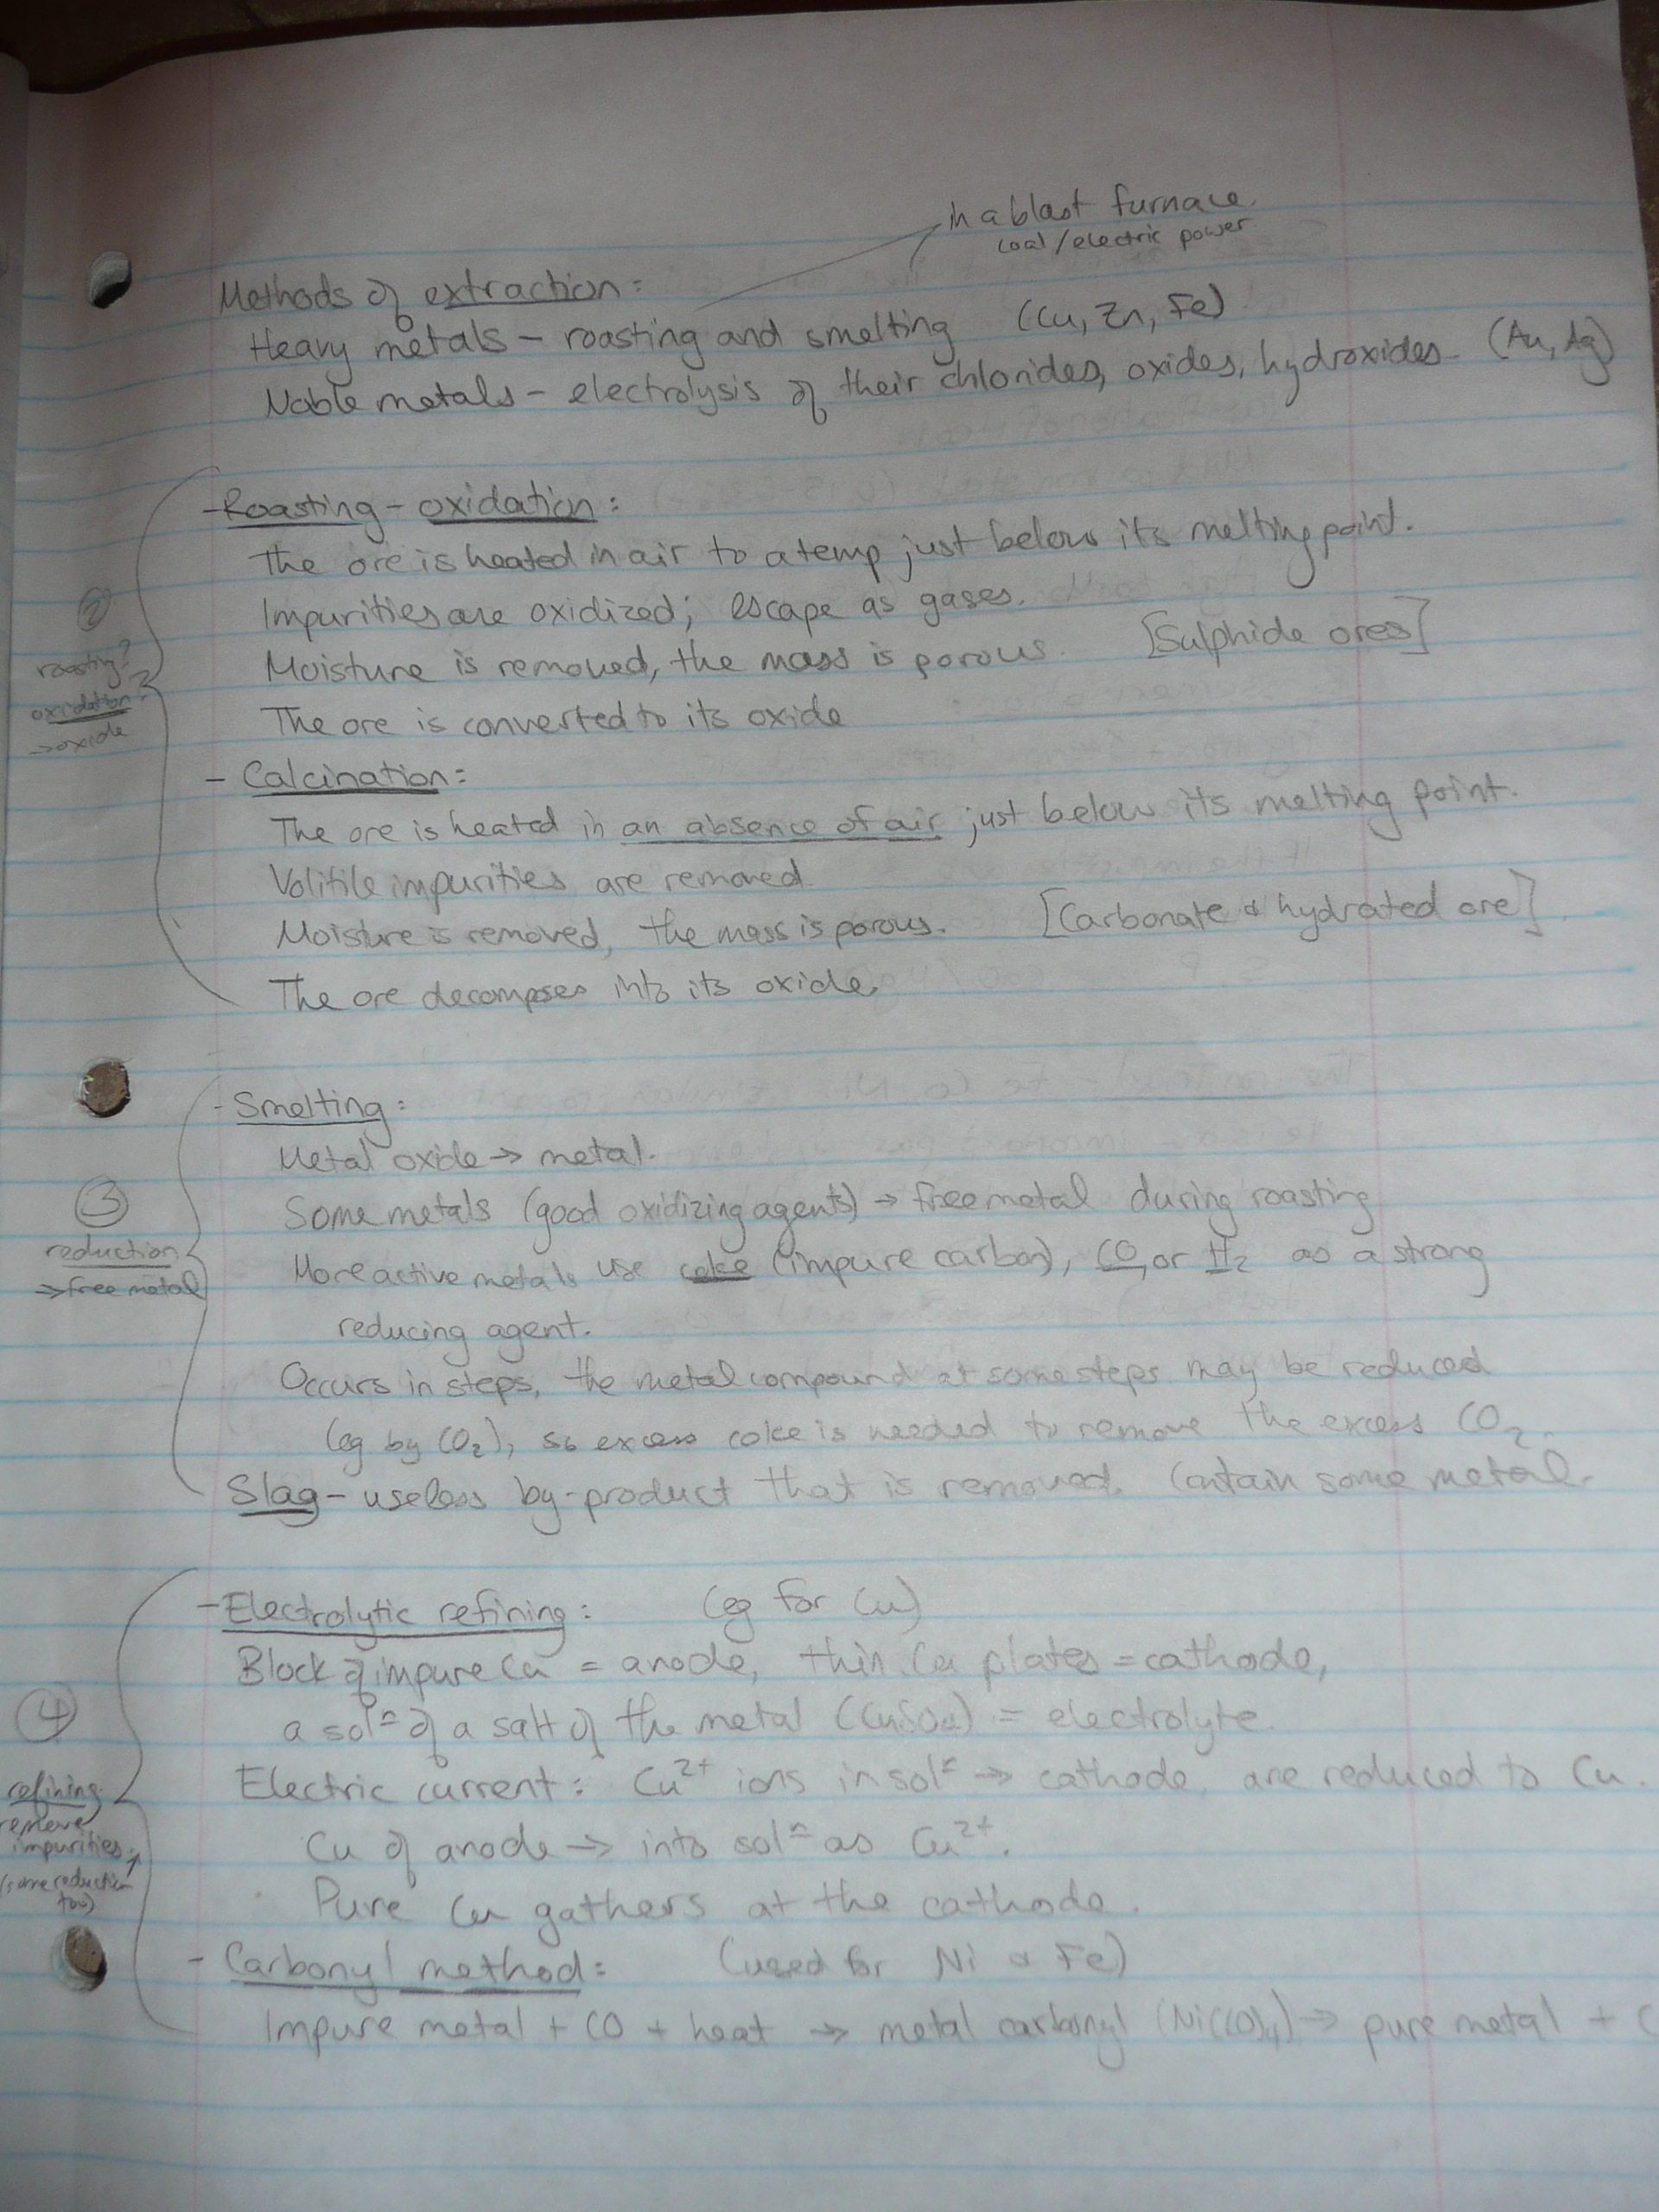 in a blast furnace
coal/electric power
Methods of extraction:
Heavy metals – roasting and smelting (Cu, Zn, Fe)
Noble metals – electrolysis of their chlorides, oxides, hydroxides (Au, Ag)
- Roasting – oxidation:
The ore is heated in air to a temp just below its melting point.
Impurities are oxidized; escape as gases.
Moisture is removed, the mass is porous. [Sulphide ores]
The ore is converted to its oxide
②
roasting?
oxidation?
→oxide
- Calcination:
The ore is heated in an absence of air just below its melting point.
Volitile impurities are removed
Moisture is removed, the mass is porous. [Carbonate & hydrated ore]
The ore decomposes into its oxide.
- Smelting:
Metal oxide → metal.
Some metals (good oxidizing agents) → free metal during roasting
③
reduction
→free metal
More active metals use coke (impure carbon), CO, or H₂ as a strong
reducing agent.
Occurs in steps, the metal compound at some steps may be reduced
(eg by CO₂), so excess coke is needed to remove the excess CO₂.
Slag – useless by-product that is removed. Contain some metal.
- Electrolytic refining: (eg for Cu)
Block of impure Cu = anode, thin Cu plates = cathode,
a solⁿ of a salt of the metal (CuSO₄) = electrolyte.
④
refining
remove
impurities
(some reduction
too)
Electric current: Cu²⁺ ions in solⁿ → cathode, are reduced to Cu.
Cu of anode → into solⁿ as Cu²⁺.
Pure Cu gathers at the cathode.
- Carbonyl method: (used for Ni & Fe)
Impure metal + CO + heat → metal carbonyl (Ni(CO)₄) → pure metal + C